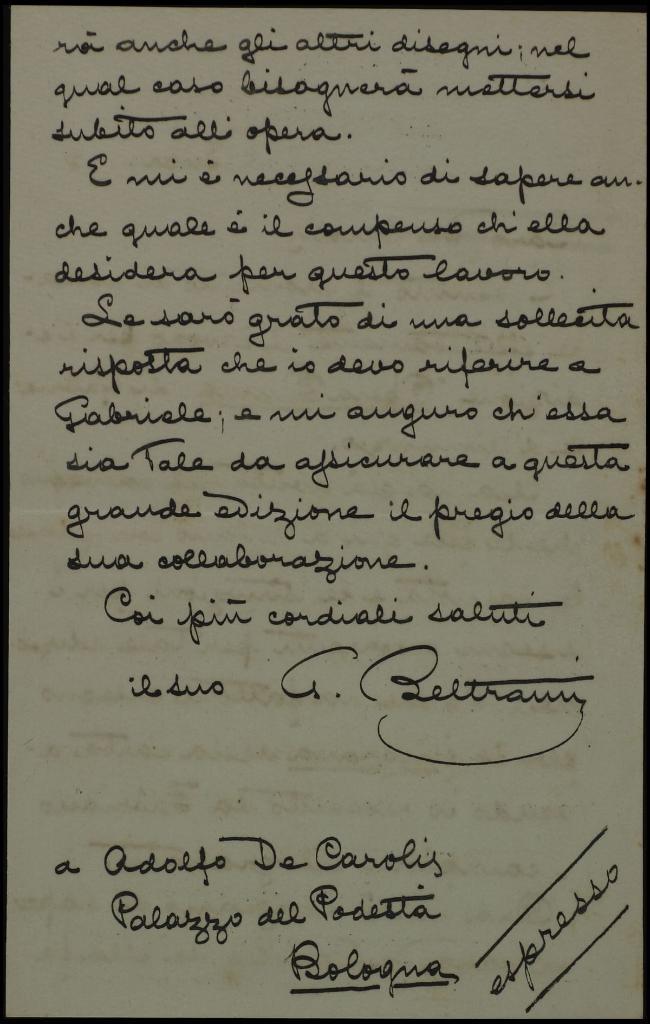 rà anche gli altri disegni; nel
qual caso bisognerà mettersi
subito all'opera.
E mi è necessario di sapere an-
che quale è il compenso ch'ella
desidera per questo lavoro.
Le sarò grato di una sollecita
risposta che io devo riferire a
Gabriele; e mi auguro ch'essa
sia tale da assicurare a questa
grande edizione il pregio della
sua collaborazione.
Coi più cordiali saluti
il suo G. Beltrami
a Adolfo De Carolis
Palazzo del Podestà
Bologna
espresso